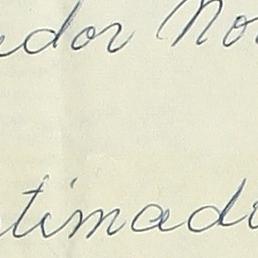 edor No
timado